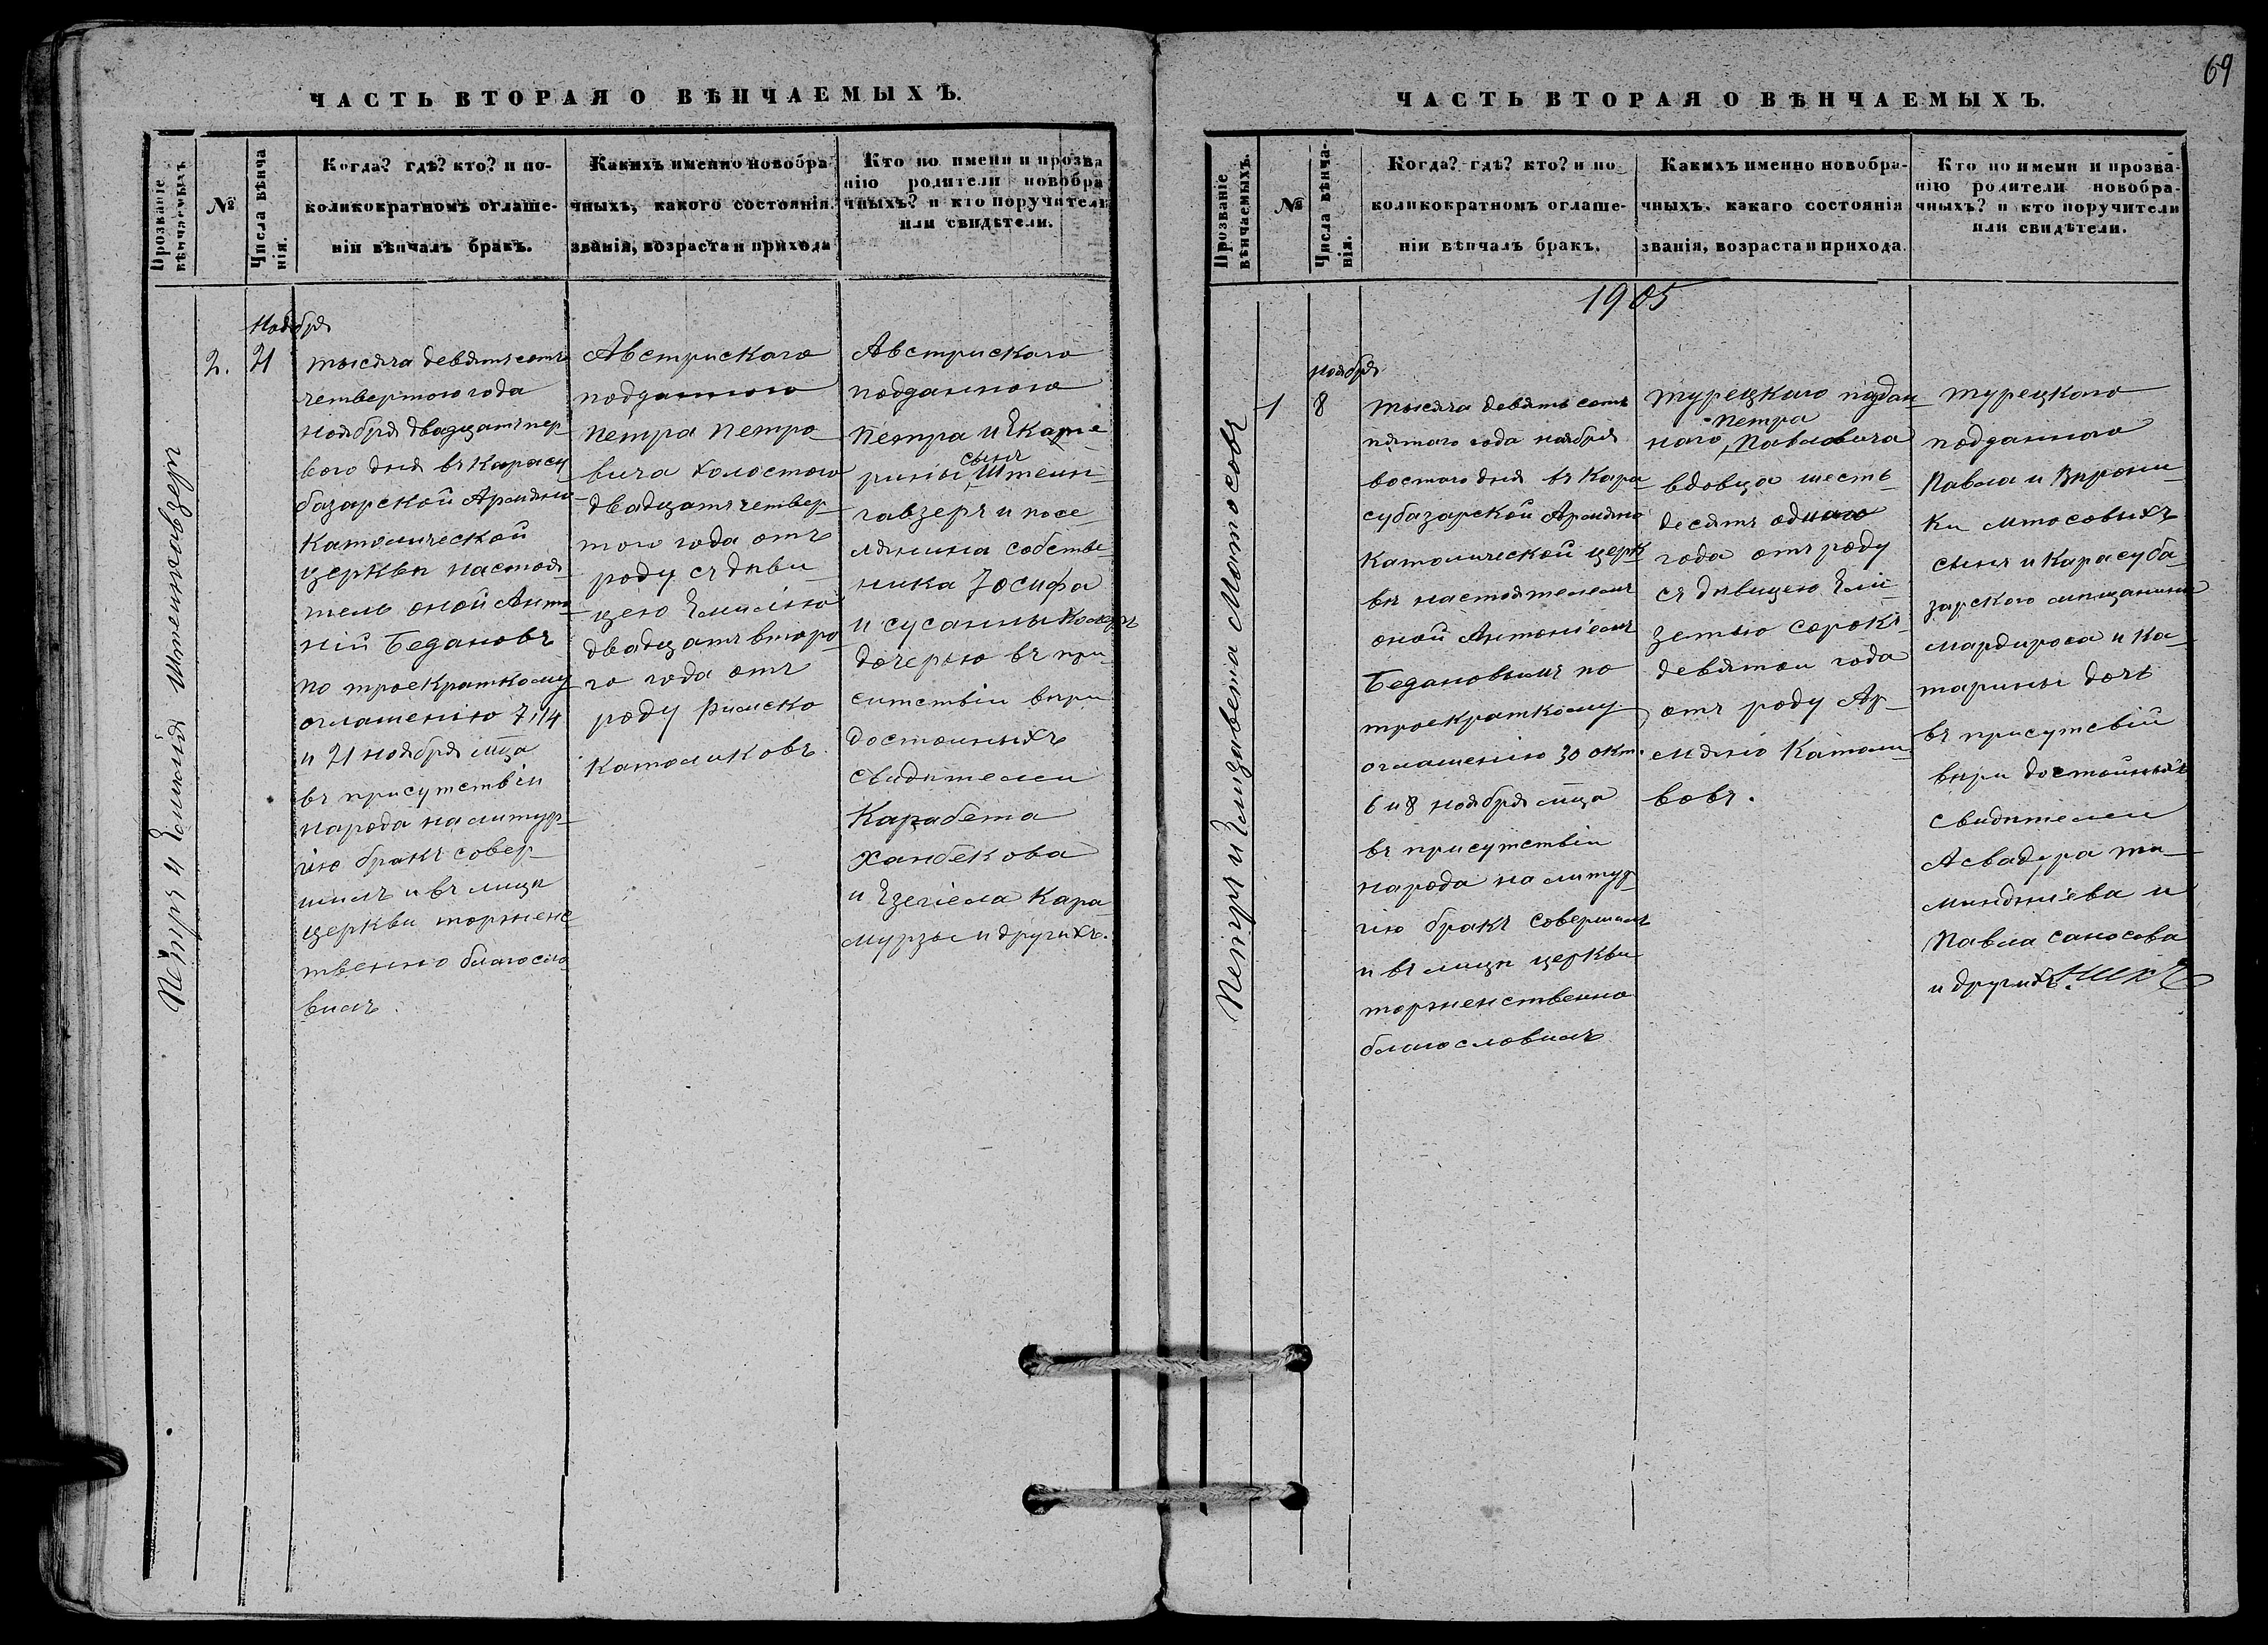 69
ЧАСТЬ ВТОРАЯ О ВѢНЧАЕМЫХЪ.
Прозваніе вѣнчаемыхъ.
№
Числа вѣнчанія.
Когда? гдѣ? кто? и по-
коликократномъ оглаше-
ніи вѣнчалъ бракъ.
Какихъ именно новобра-
чныхъ, какого состоянія.
званія, возраста и прихода
Кто по имени и прозва
нію родители новобра
чныхъ? и кто поручители
или свидѣтели.
Петръ и Емилія Штеингавзеръ
2.
Ноября
21
тысяча девятьсотъ
четвертого года
ноября двадцатъ пер-
вого дня въ Карасу
базарской Армяно
Католической
церкви настоя-
тель оной Анто
ній Бедановъ
по троекраткому
оглашенію 7, 14
и 21 ноября мца
въ присутствіи
народа на литур-
гію бракъ совер-
шилъ и въ лицѣ
церкви торжене
твенно благосло
вилъ.
Австрискаго
подданого
Петра Петро
вича холостого
двадцатъ четвер-
того года отъ
роду съ дѣви
цею Емилію
двадцатъ второ
го года отъ
роду Римско
Католиковъ.
Австрискаго
подданого
Петра и Екате
рины сынъ Штеин-
гавзеръ и посе-
лянина собстве
ника Іосифа
и Сусанны
дочерью въ при-
ситствіи вѣри
достоиныхъ
свидѣтелеи
Карабета
Ханбекова
и Езегіела Кара-
мурзы и другихъ.
ЧАСТЬ ВТОРАЯ О ВѢНЧАЕМЫХЪ.
Прозваніе вѣнчаемыхъ.
№
Числа вѣнча-
нія.
Когда? гдѣ? кто? и по
коликократномъ оглаше-
ніи вѣнчалъ бракъ.
Какихъ именно новобра-
чныхъ. какаго состоянія
званія, возраста и прихода.
Кто по имени и прозва-
нію родители новобра-
чныхъ? и кто поручители
или свидѣтели.
1905
Петръ и Елизавета Мотосовъ
1
ноября
8
тысяча девять сотъ
пятого года ноября
востого дня въ Кара
субазарской Армяно
Католической церк
вѣ настоятелемъ
оной Антоніемъ
Бедановымъ по
троекраткому
оглашенію 30 окт.
6 и 8 ноября мца
въ присутствіи
народа на литур
гію бракъ совершилъ
и въ лицѣ церкви
торженственно
благословилъ
турецкого поддан
ного Петра Павловича
вдовца шесть
десятъ одного
года отъ роду
съ дѣвицею Ели
зетью сорокъ
девятои года
отъ роду Ар-
мяно Католи
вовъ.
турецкого
подданного
Павла и Вирони-
ки мтосовыхъ
сынъ и Карасуба-
зарского мѣщанина
мардироса и Ка-
тарины дочь
въ присутсвіи
вѣри достоиныхъ
свидѣтелеи
Асвадура ти-
минджіева и
Павла саносова
и другихъ.